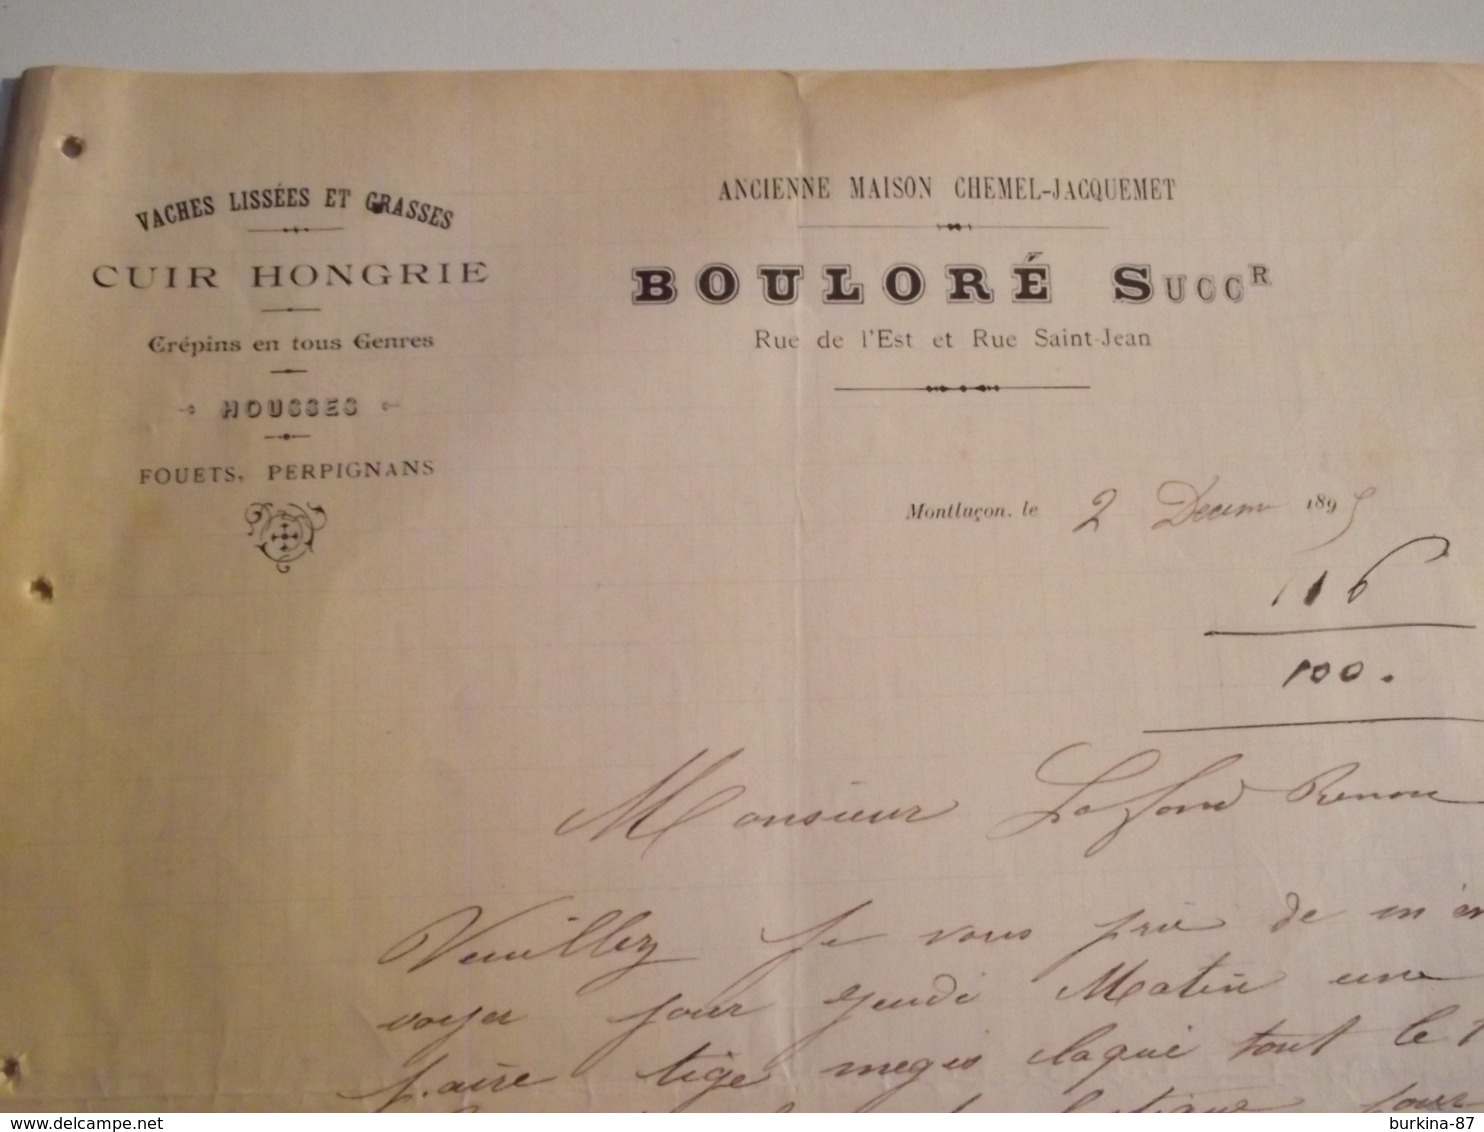 VACHES LISSÉES ET GRASSES
CUIR HONGRIE
Crépins en tous Genres
HOUSSES
FOUETS, PERPIGNANS
ANCIENNE MAISON CHEMEL-JACQUEMET
BOULORÉ SUCCR
Rue de l'Est et Rue Saint-Jean
Montluçon, le 2 Decem 1895
116
100.
Monsieur Lafond Renon
Veuillez je vous prie de m'en
voyer pour Jeudi Matin une
paire tige megis claque tout le
pour
burkina-87